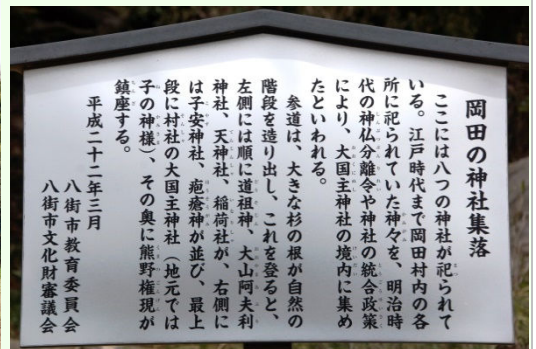 岡田の神社集落
ここには八つの神社が祀られて
いる。江戸時代まで岡田村内の各
所に祀られていた神々を、明治時
代の神仏分離令や神社の統合政策
により、大国主神社の境内に集め
たといわれる。
参道は、大きな杉の根が自然の
階段を造り出し、これを登ると、
左側には順に道祖神、大山阿夫利
神社、天神社、稲荷社が、右側に
は子安神社、疱瘡神が並び、最上
段に村社の大国主神社（地元では
子の神様）、その奥に熊野権現が
鎮座する。
平成二十二年三月
八街市教育委員会
八街市文化財審議会